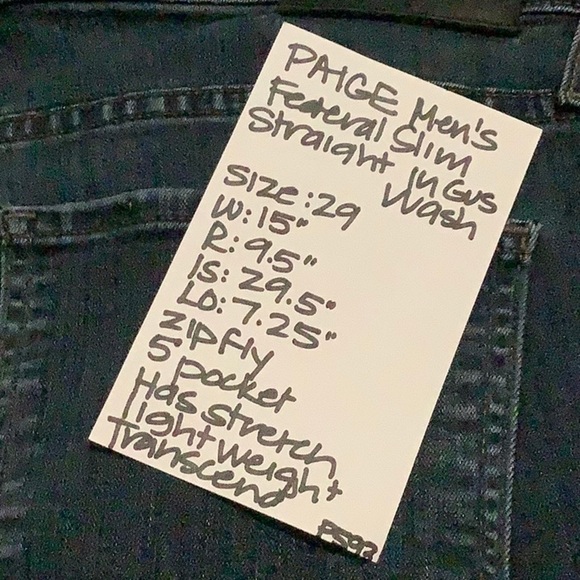 PAIGE Men's
Federal Slim
Straight in Gus
Wash
Size: 29
W: 15"
R: 9.5"
IS: 29.5"
LO: 7.25"
Zip fly
5 pocket
Has stretch
light weight
Transcend